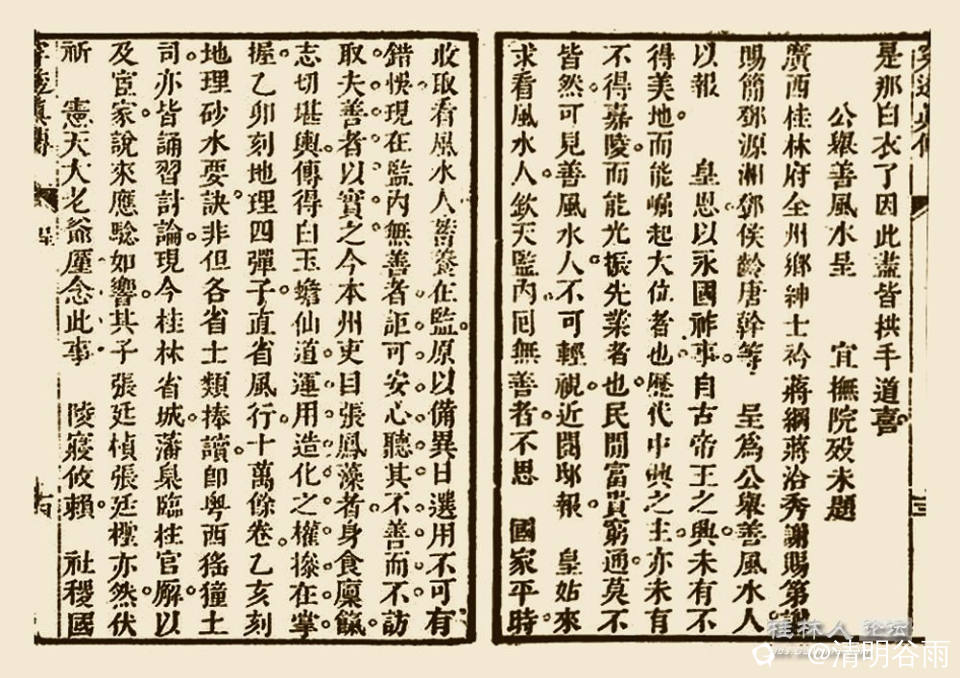 是那白衣了因此盡皆拱手道喜
公舉善風水呈 宜撫院殁未題
廣西桂林府全州鄉紳士衿蔣綱蔣治秀謝賜第謝
賜簡鄧源湘鄧侯齡唐幹等 呈爲公舉善風水人
以報 皇恩以永國祚事自古帝王之興未有不
得美地而能崛起大位者也歷代中興之主亦未有
不得嘉陵而能光振先業者也民間富貴窮通莫不
皆然可見善風水人不可輕視近閱邸報 皇姑來
求看風水人欽天監内囘無善者不思 國家平時
收取看風水人蓄養在監原以備異日選用不可有
錯悞現在監内無善者詎可安心聽其不善而不訪
取夫善者以實之今本州吏目張鳳藻者身食廩餼
志切堪輿傳得白玉蟾仙道運用造化之權摻在掌
握乙卯刻地理四彈子直省風行十萬餘卷乙亥刻
地理砂水要訣非但各省士類捧讀卽粤西猺獞土
司亦皆誦習討論現今桂林省城藩臬臨桂官廨以
及宦家說來應驗如響其子張廷楨張廷橒亦然伏
祈 憲天大老爺壓念此事 陵寢攸賴 社稷國
桂林人 论坛
@清明谷雨